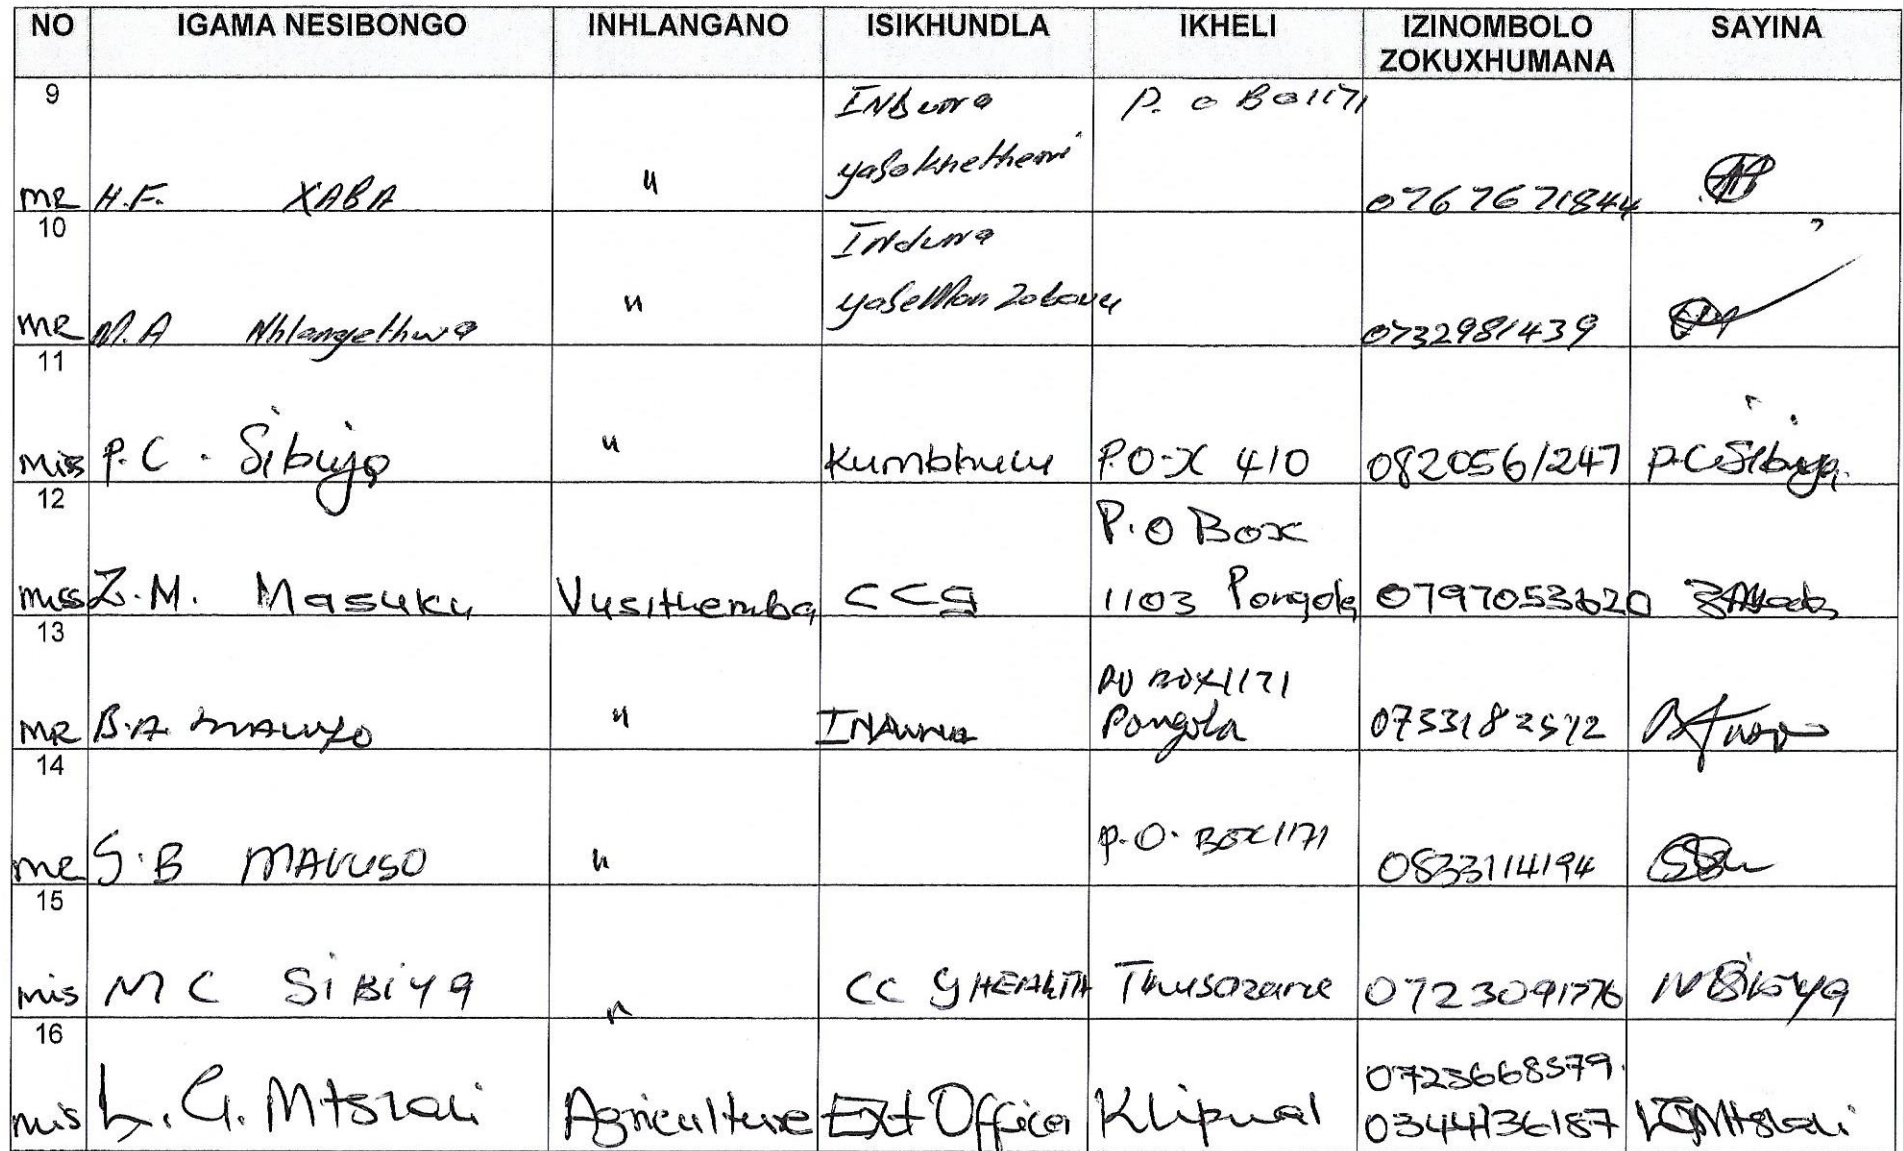 NO IGAMA NESIBONGO INHLANGANO ISIKHUNDLA IKHELI IZINOMBOLO ZOKUXHUMANA SAYINA
9
MR H.F. XABA " INDuna P. O BO1171 0767671844
10
MR M.A Nhlangethwa " Induna 0732981439
11
Mis P.C. Sibiya " Kumbhulu P.O-X 410 0820561247 P.C Sibiya
12
Miss Z.M. Masuku Vusithemba CCG P.O Box
1103 Pongola 0797053620
13
MR B.A. " INduna PO BOX 1171
Pongola
14
MR S.B MAVUSO " P.O. BOX 1171 0833114194
15
Mis M C SiBiya " CC G HEALTH Thusozane 0723091776 Sibiya
16
Mis L.G. Mtshali Agriculture Ext Officer Klipwal 0723668579
0344136187 LG Mtshali